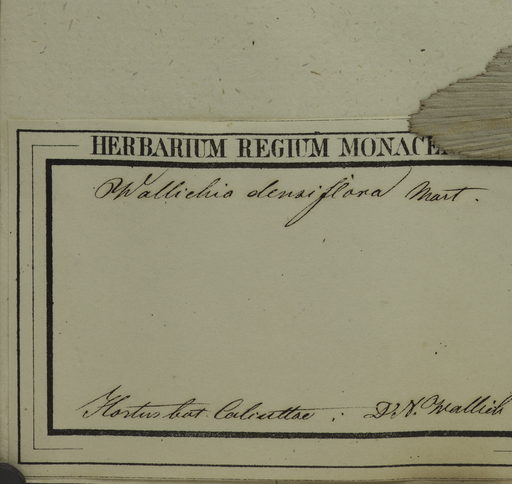 HERBARIUM REGIUM MONACE
Wallichia densiflora Mart.
Hortus bot Calcuttae. Dr. N. Wallich